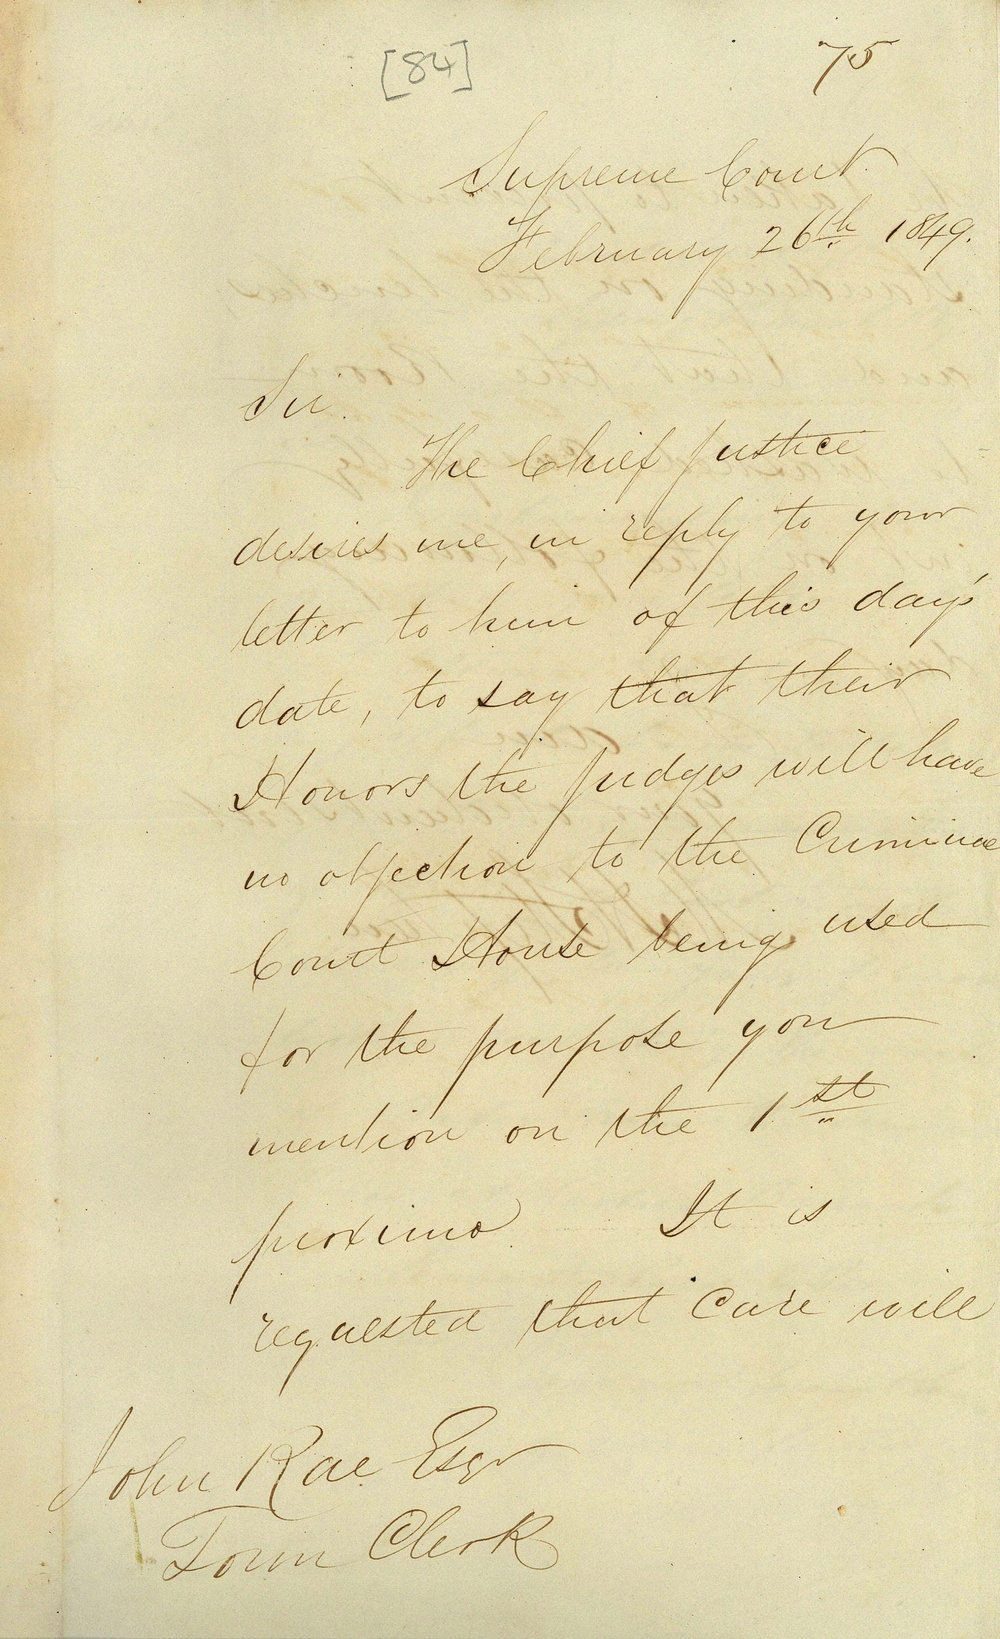 [84]
75
Supreme Court
February 26th 1849.
Sir.
The Chief Justice
desires me, in reply to your
letter to him of this day's
date, to say that their
Honors the Judges will have
no objection to the Criminal
Court House being used
for the purpose you
mention on the 1st
proximo. It is
requested that Care will
John Rae Esqr
Town Clerk